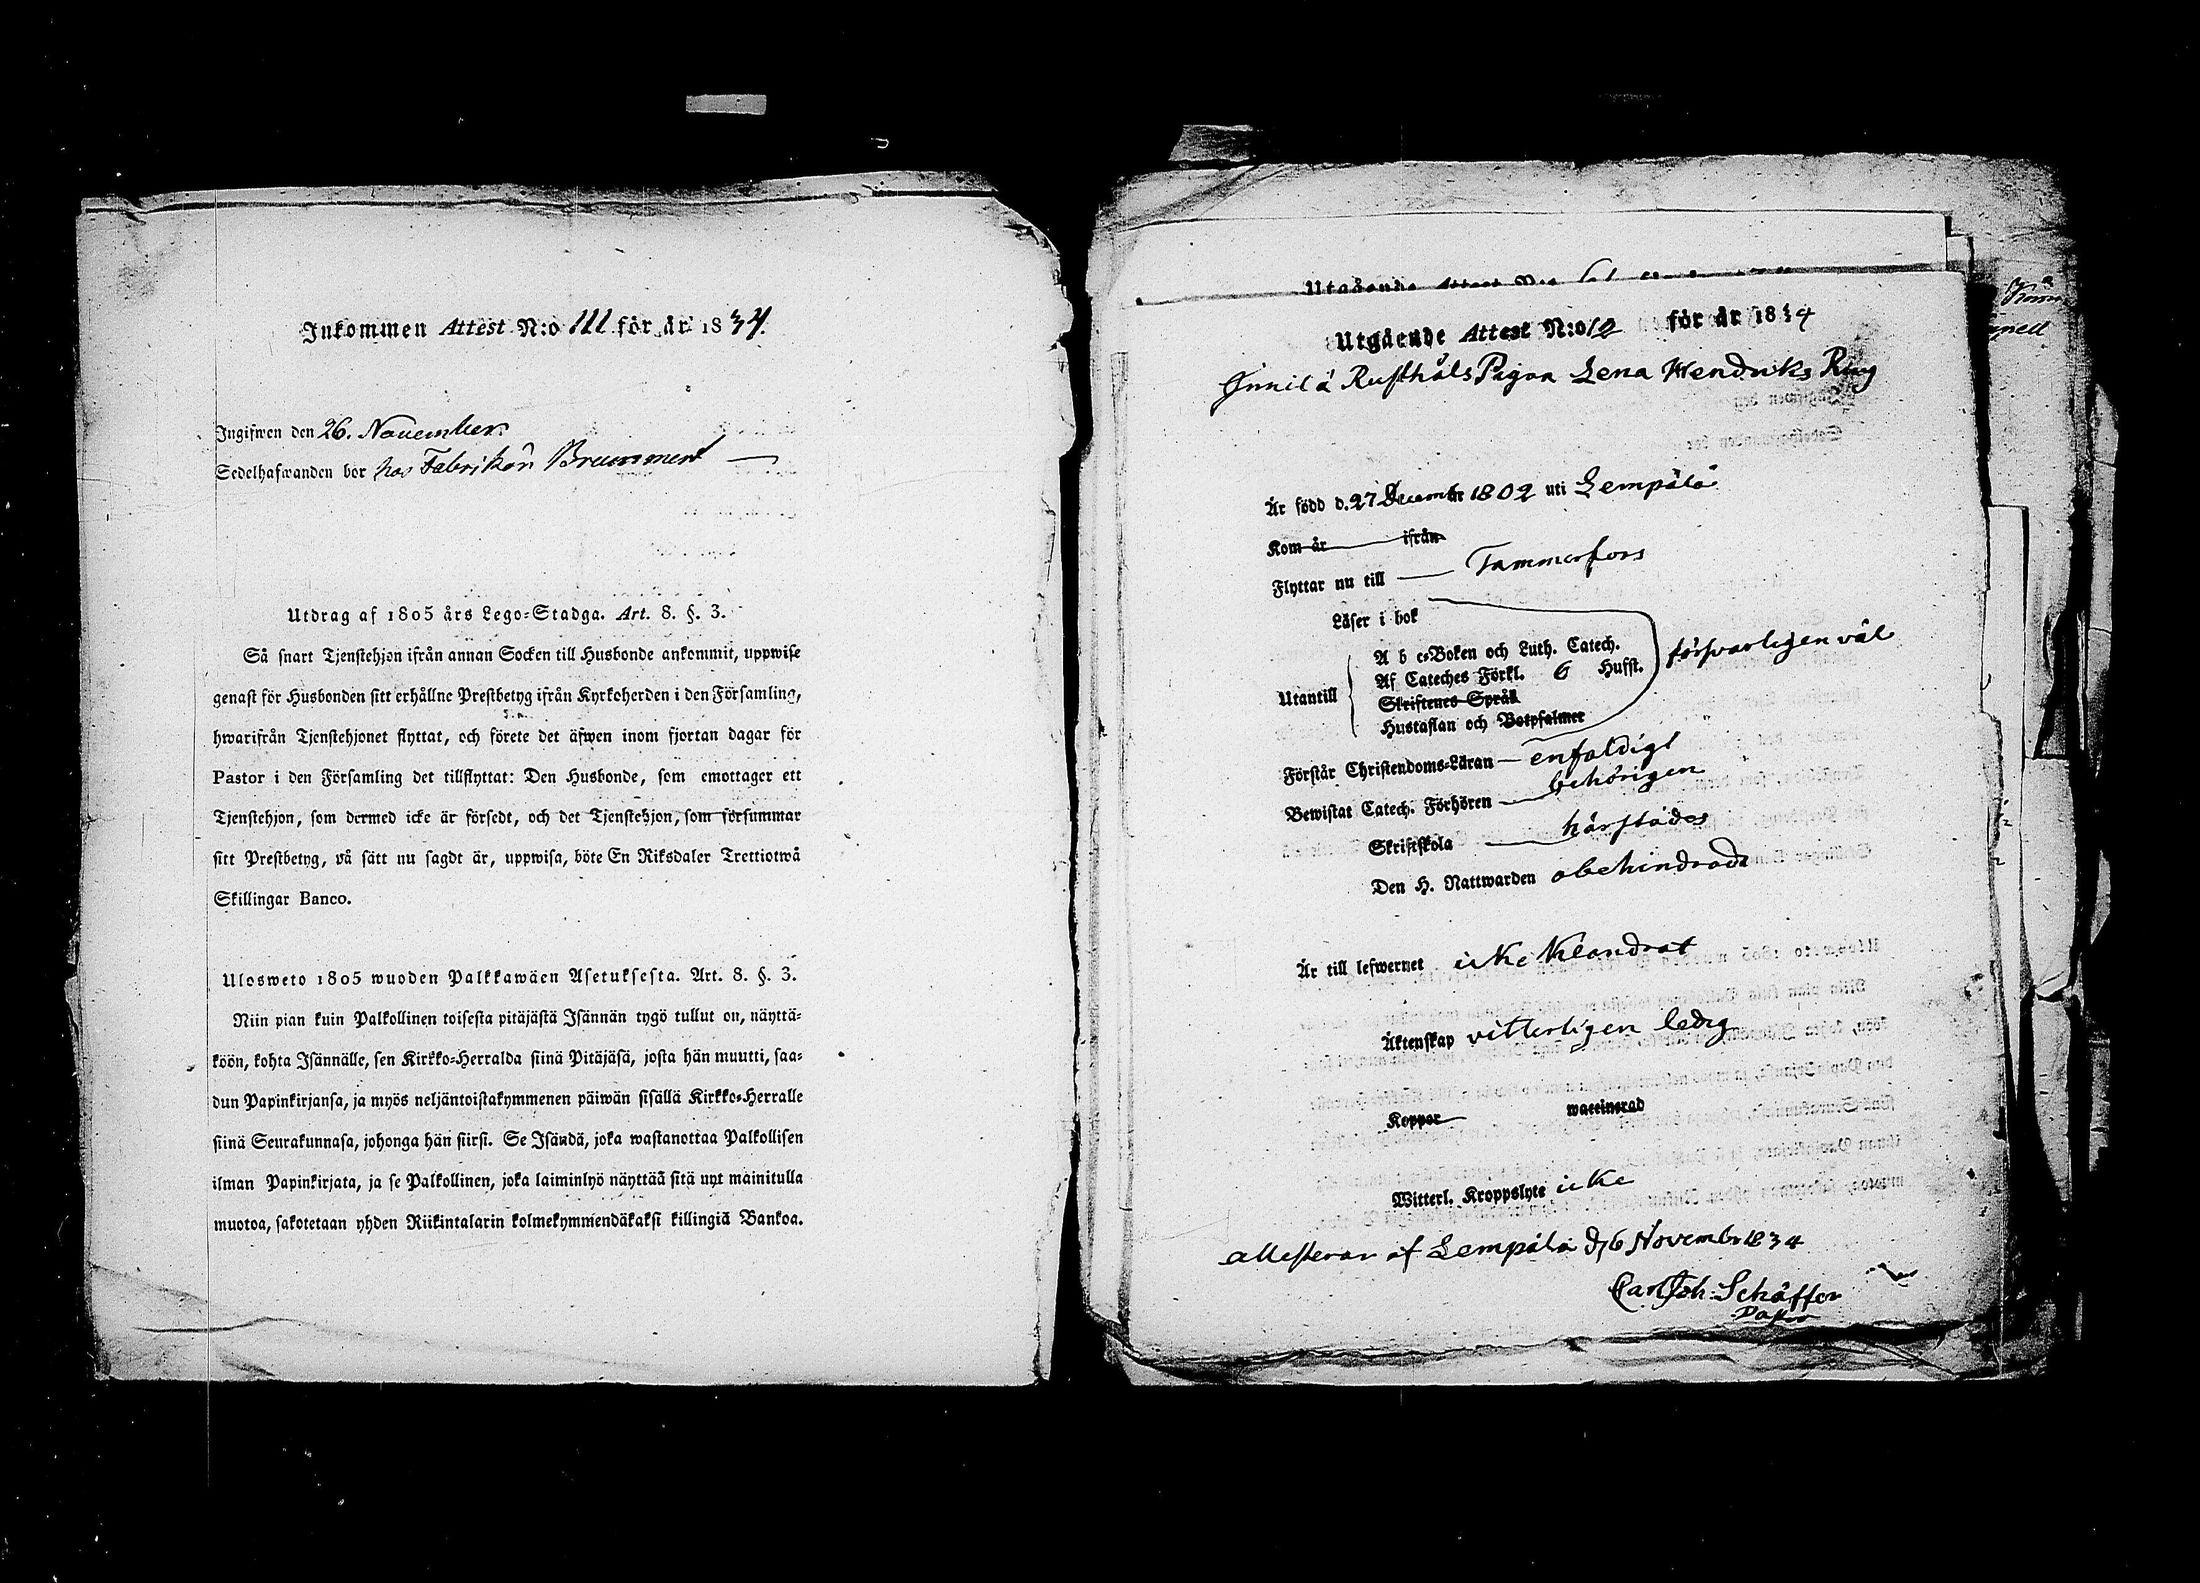 Inkommen Attest N:o 111 för år 1834.
Ingifwen den 26. November.
Sedelhafwanden bor hos Fabrikör Brummert
Utdrag af 1805 års Lego-Stadga. Art. 8. §. 3.
Så snart Tjenstehjon ifrån annan Socken till Husbonde ankommit, uppwise
genast för Husbonden sitt erhållne Prestbetyg ifrån Kyrkoherden i den Församling,
hwarifrån Tjenstehjonet flyttat, och förete det äfwen inom fjortan dagar för
Pastor i den Församling det tillflyttat: Den Husbonde, som emottager ett
Tjenstehjon, som dermed icke är försedt, och det Tjenstehjon, som försummar
sitt Prestbetyg, på sätt nu sagdt är, uppwisa, böte En Riksdaler Trettiotwå
Skillingar Banco.
Ulosweto 1805 wuoden Palkkawäen Asetuksesta. Art. 8. §. 3.
Niin pian kuin Palkollinen toisesta pitäjästä Isännän tygö tullut on, näyttä-
köön, kohta Isännälle, sen Kirkko-Herralda siinä Pitäjäsä, josta hän muutti, saa-
dun Papinkirjansa, ja myös neljäntoistakymmenen päiwän sisällä Kirkko-Herralle
siinä Seurakunnasa, johonga hän siirsi. Se Isändä, joka wastanottaa Palkollisen
ilman Papinkirjata, ja se Palkollinen, joka laiminlyö näyttää sitä nyt mainitulla
muotoa, sakotetaan yhden Riikintalarin kolmekymmendäkaksi killingiä Bankoa.
Utgående Attest N:o
Utgående Attest N:o 12 för år 1834
Innilä Rusthåls Pigan Lena Hendriks
Är född d. 27 Decembr 1802 uti Lempälä
Kom år ifrån
Flyttar nu till Tammerfors
Läser i bok
A b c-Boken och Luth. Catech. försvarligen väl
Af Cateches Förkl. 6 Hufst.
Utantill
Skriftenes Språk
Hustaflan och Botpsalmer
Förstår Christendoms-Läran enfaldigt
Bewistat Catech. Förhören behörigen
Skriftskola härstädes
Den H. Nattwarden obehindrad
Är till lefwernet icke klandrat
Äktenskap vitterligen ledig
Koppor waccinerad
Witterl. Kroppslyte icke
attesterar af Lempälä d. 6 Novembr 1834
Carl Joh. Schäffer